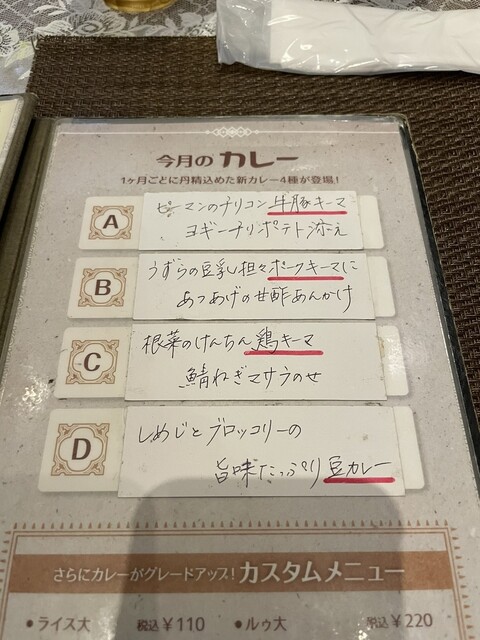 今月の カレー
1ヶ月ごとに丹精込めた新カレー4種が登場!
A
ピーマンのチリコン牛豚キーマ
ヨギーチリポテト添え
B
うずらの豆乳担々ポークキーマに
あつあげの甘酢あんかけ
C
根菜のけんちん鶏キーマ
鯖ねぎマサラのせ
D
しめじとブロッコリーの
旨味たっぷり豆カレー
さらにカレーがグレードアップ! カスタムメニュー
•ライス大 税込¥110 •ルゥ大 税込¥220